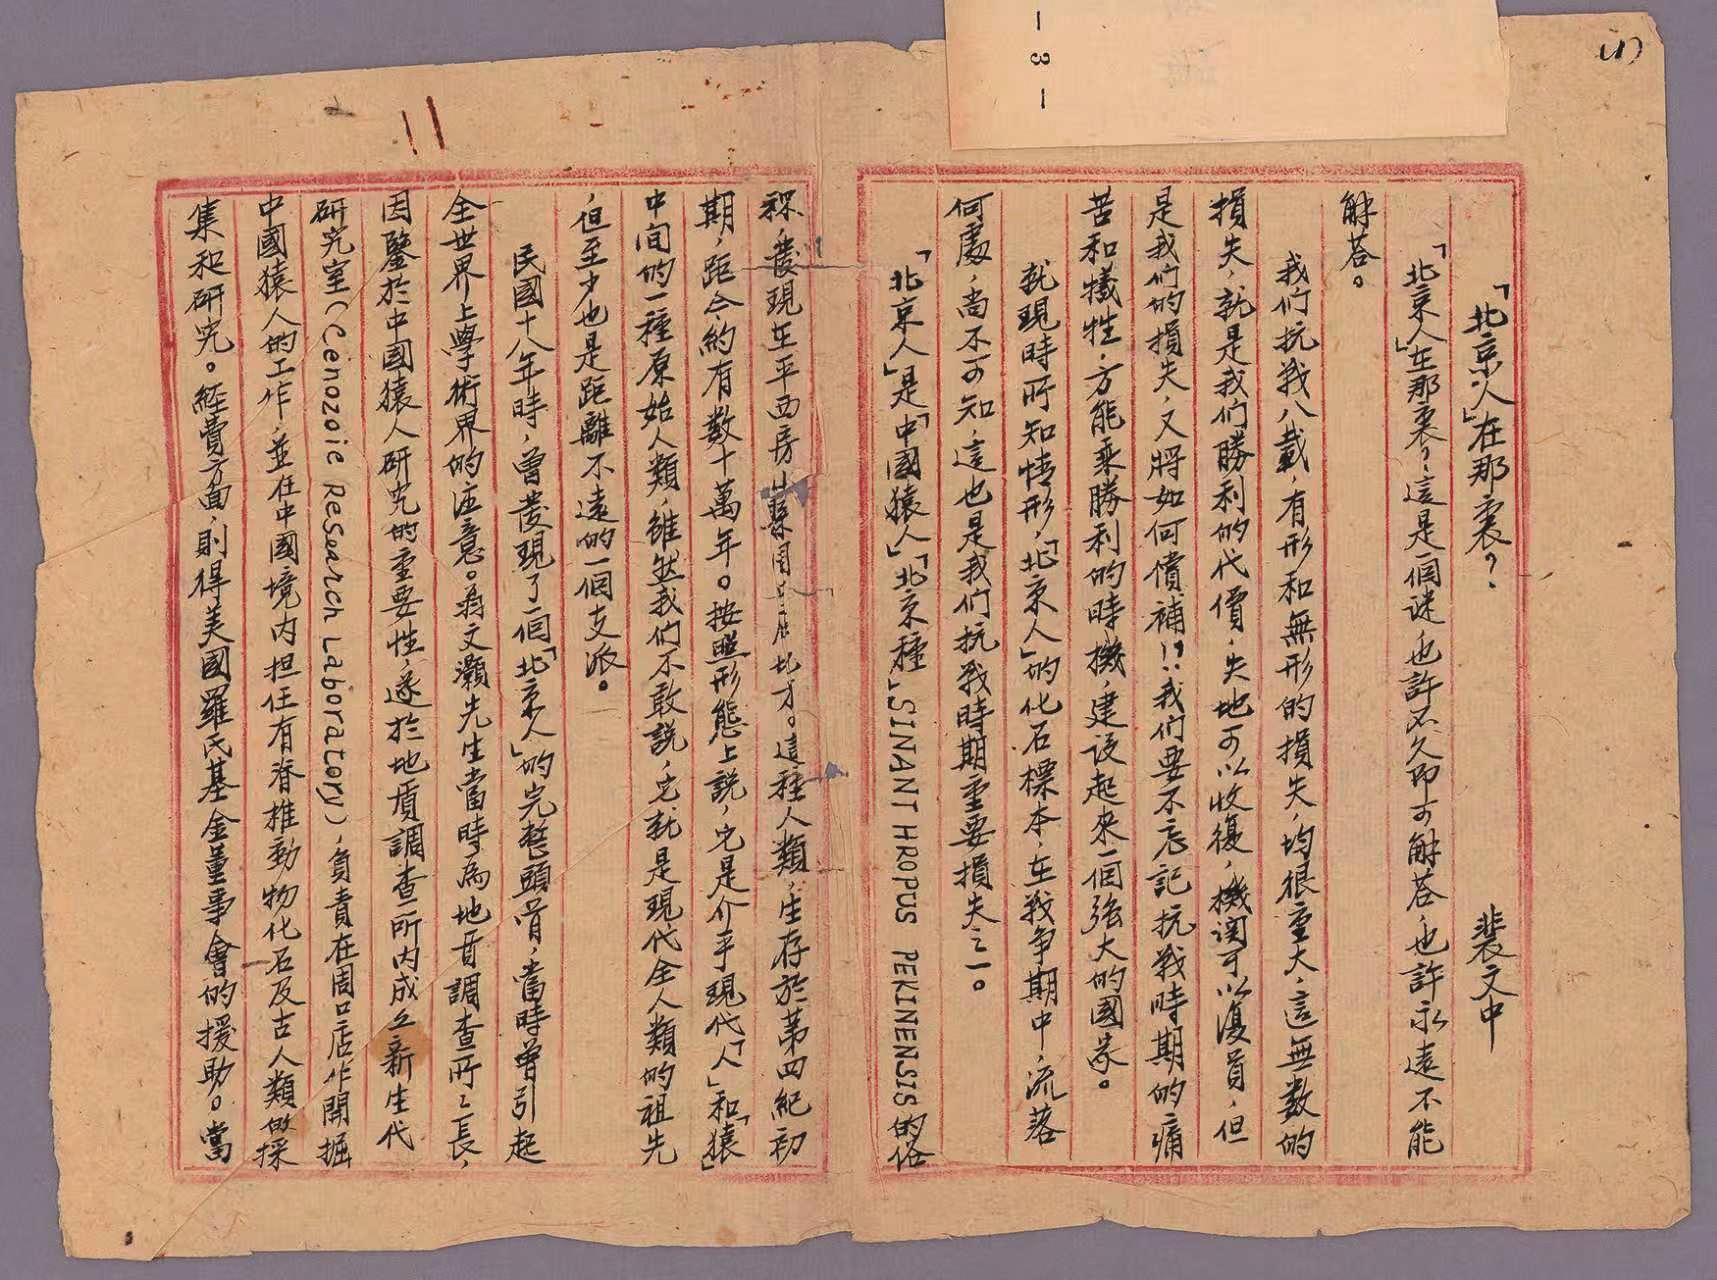 (1)
— 3 —
「北京人」在那裏？
裴文中
「北京人」在那裏？這是一個謎，也許不久即可解答，也許永遠不能
解荅。
我们抗戰八載，有形和無形的損失，均很重大，這無数的
損失，就是我们勝利的代價，失地可以收復，機関可以復員，但
是我们的損失，又將如何償補！？我们要不忘記抗戰時期的痛
苦和犧牲，方能乘勝利的時機，建设起來一個強大的國家。
就現時所知情形，「北京人」的化石標本，在戰争期中，流落
何處，尚不可知，這也是我们抗戰時期重要損失之一。
「北京人」是「中國猿人」「北京種」SINANTHROPUS PEKINENSIS的俗
称，發現在平西房山縣周口店地方。這種人類，生存於第四紀初
期，距今約有数十萬年。按照形態上説，它是介乎現代「人」和「猿」
中间的一種原始人類，雖然我们不敢説，它就是現代全人類的祖先
，但至少也是距離不遠的一個支派。
民國十八年時，曾發現了一個「北京人」的完整頭骨，當時曾引起
全世界上學術界的注意。翁文灝先生當時為地質調查所所長，
因鑒於中國猿人研究的重要性，遂於地質調查所内成立新生代
研究室(Cenozoic Research Laboratory)，負責在周口店作開掘
中國猿人的工作，並在中國境内担任有脊椎動物化石及古人類做採
集和研究。經費方面，則得美國羅氏基金董事會的援助。當